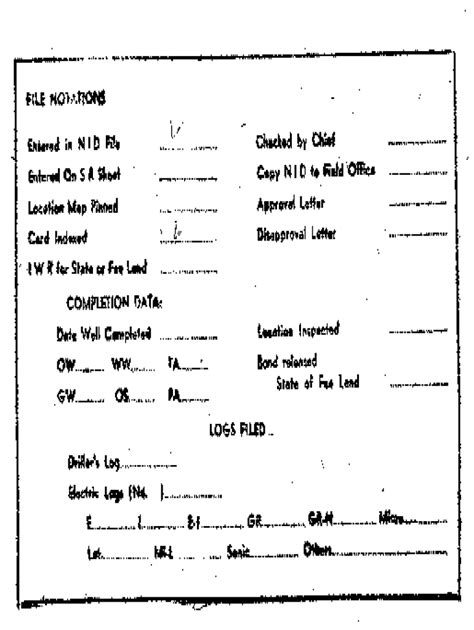 FILE NOTATIONS
Entered in N I D File ........ Checked by Chief ........
Entered On S R Sheet ........ Copy N I D to Field Office ........
Location Map Pinned ........ Approval Letter ........
Card Indexed ........ Disapproval Letter ........
I W R for State or Fee Land ........
COMPLETION DATA:
Date Well Completed ........ Location Inspected ........
OW........ WW........ TA........ Bond released
GW........ OS........ PA........ State of Fee Land ........
LOGS FILED
Driller's Log........
Electric Logs (No. )........
E........ I........ E-I........ GR........ GR-N........ Micro........
Lat........ Mi-L........ Sonic........ Others........